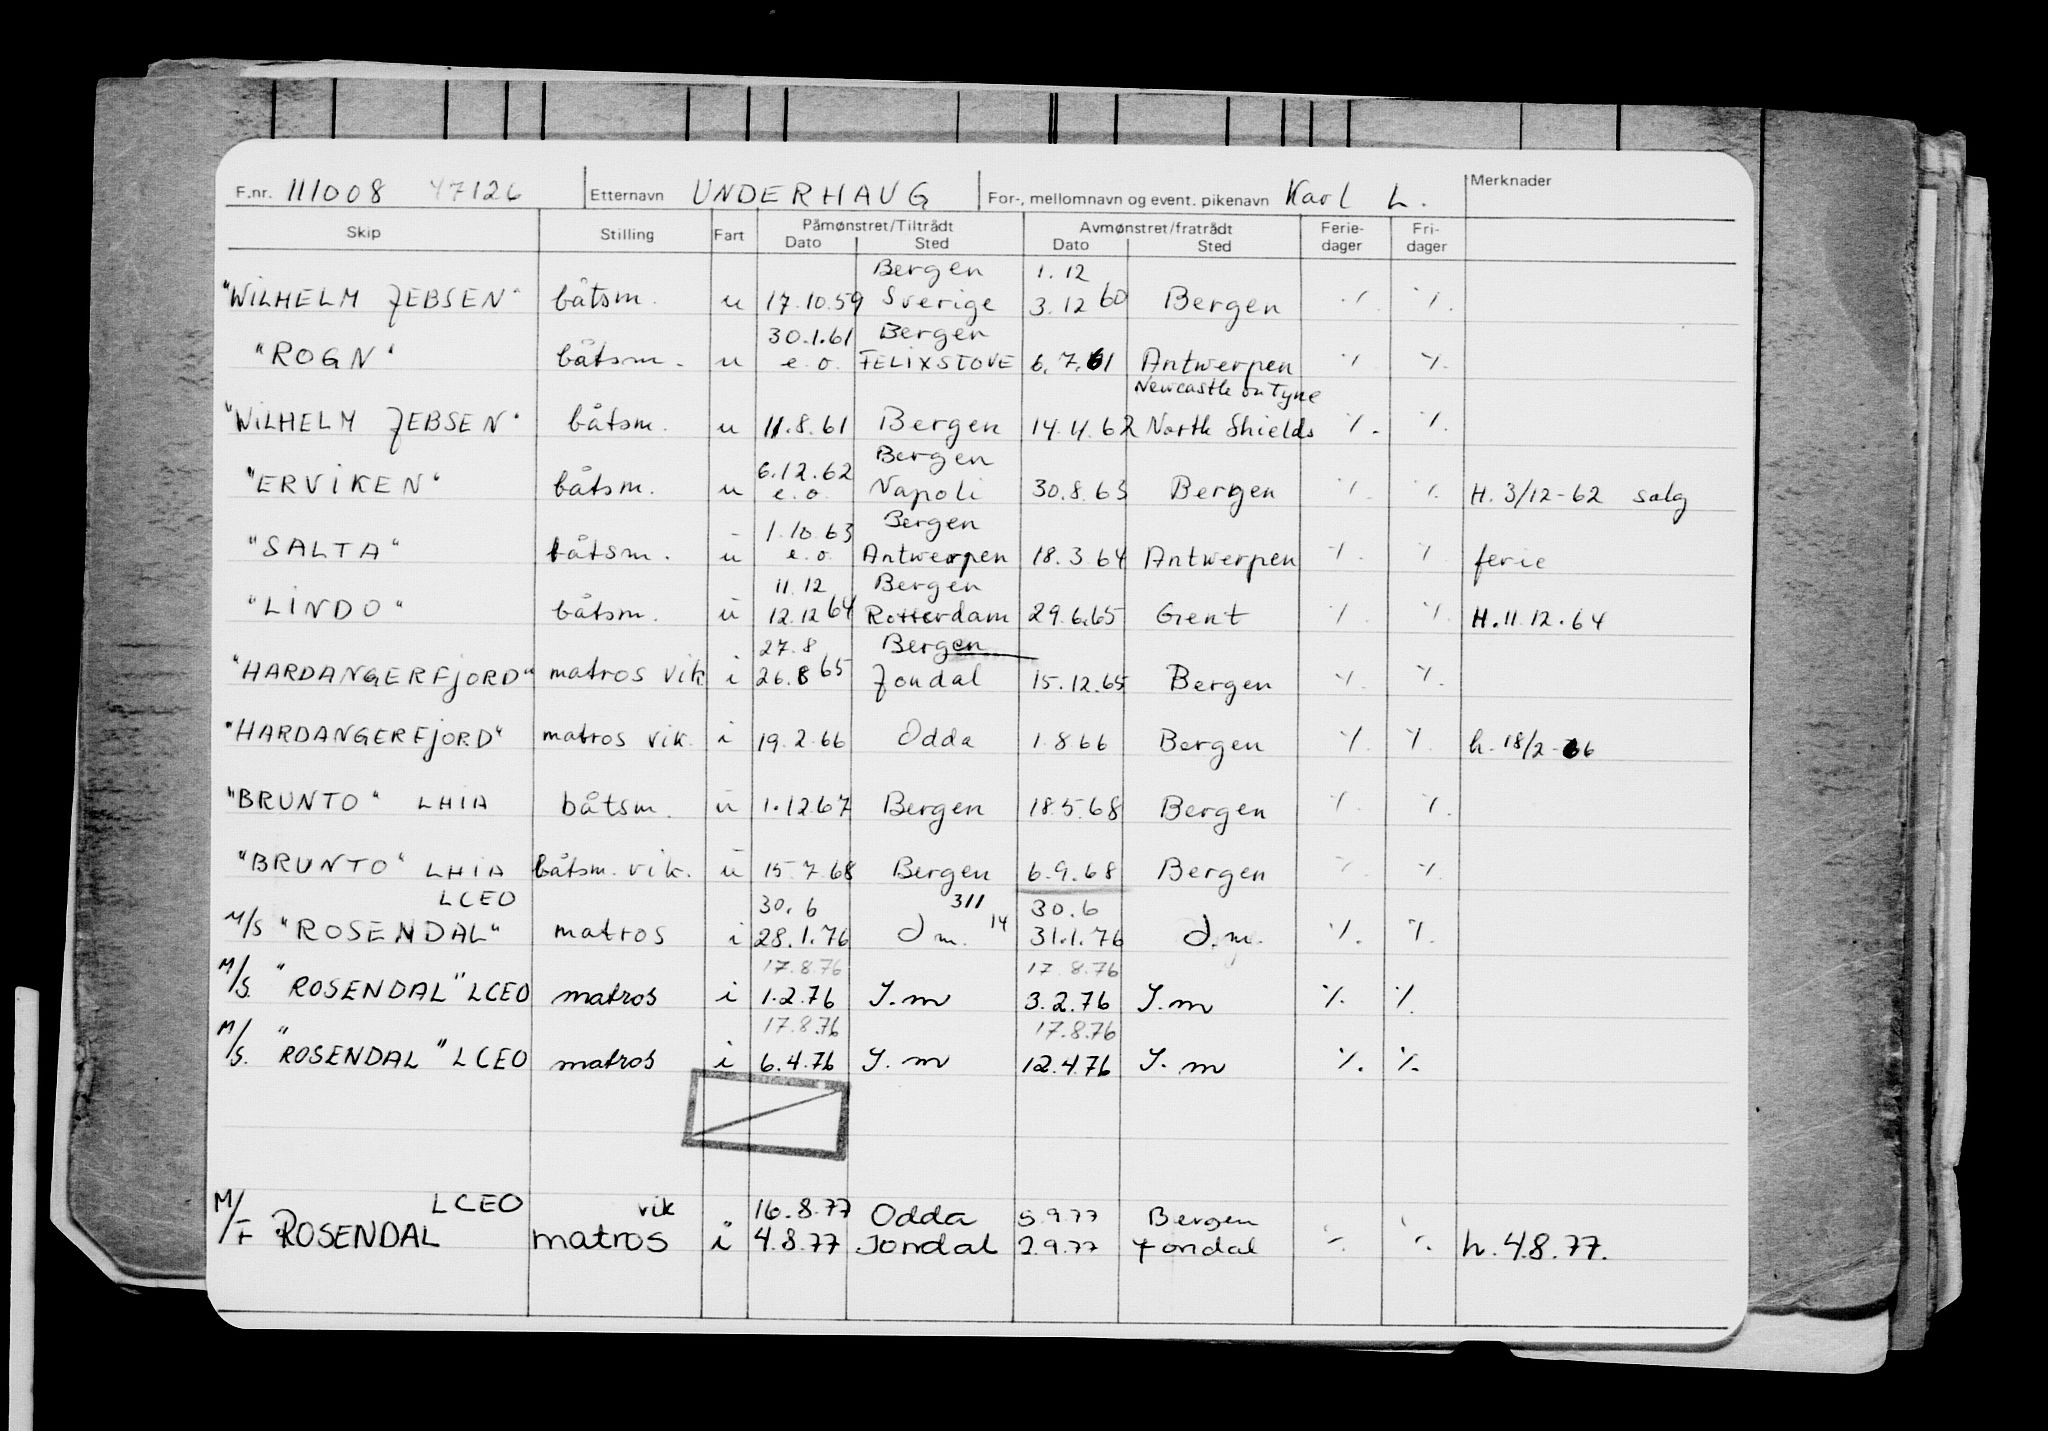 F.nr. 111008 47126 Etternavn UNDERHAUG For-, mellomnavn og event. pikenavn Karl L. Merknader
Skip Stilling Fart Påmønstret/Tiltrådt Dato Sted Avmønstret/fratrådt Dato Sted Ferie-dager Fri-dager
Bergen 1.12
"WILHELM JEBSEN" båtsm. u 17.10.59 Sverige 3.12 60 Bergen % %
30.1.61 Bergen
"ROGN" båtsm. u e.o. FELIXSTOVE 6.7.61 Antwerpen % %
Newcastle on Tyne
"WILHELM JEBSEN" båtsm. u 11.8.61 Bergen 14.4.62 North Shields % %
6.12.62 Bergen
"ERVIKEN" båtsm. u e.o. Napoli 30.8.63 Bergen % % H. 3/12-62 salg
1.10.63 Bergen
"SALTA" båtsm. u e.o. Antwerpen 18.3.64 Antwerpen % % ferie
11.12 Bergen
"LINDO" båtsm. u 12.12 64 Rotterdam 29.6.65 Gent % % H. 11.12.64
27.8 Bergen
"HARDANGERFJORD" matros vik i 26.8 65 Jondal 15.12.65 Bergen % %
"HARDANGERFJORD" matros vik. i 19.2.66 Odda 1.8 66 Bergen % % h. 18/2-66
"BRUNTO" LHIA båtsm. u 1.12 67 Bergen 18.5.68 Bergen % %
"BRUNTO" LHIA båtsm. vik. u 15.7.68 Bergen 6.9.68 Bergen % %
LCEO 30.6 311 30.6
M/S "ROSENDAL" matros i 28.1.76 J m. 14 31.1.76 J.m. % %
17.8.76 17.8.76
M/S. "ROSENDAL" LCEO matros i 1.2.76 J.m 3.2.76 J.m % %
17.8.76 17.8.76
M/S. "ROSENDAL" LCEO matros i 6.4.76 J.m 12.4.76 J.m % %
LCEO vik 16.8.77 Odda 5.9.77 Bergen
M/F ROSENDAL matros i 4.8.77 Jondal 2.9.77 Jondal % % h. 4.8.77.